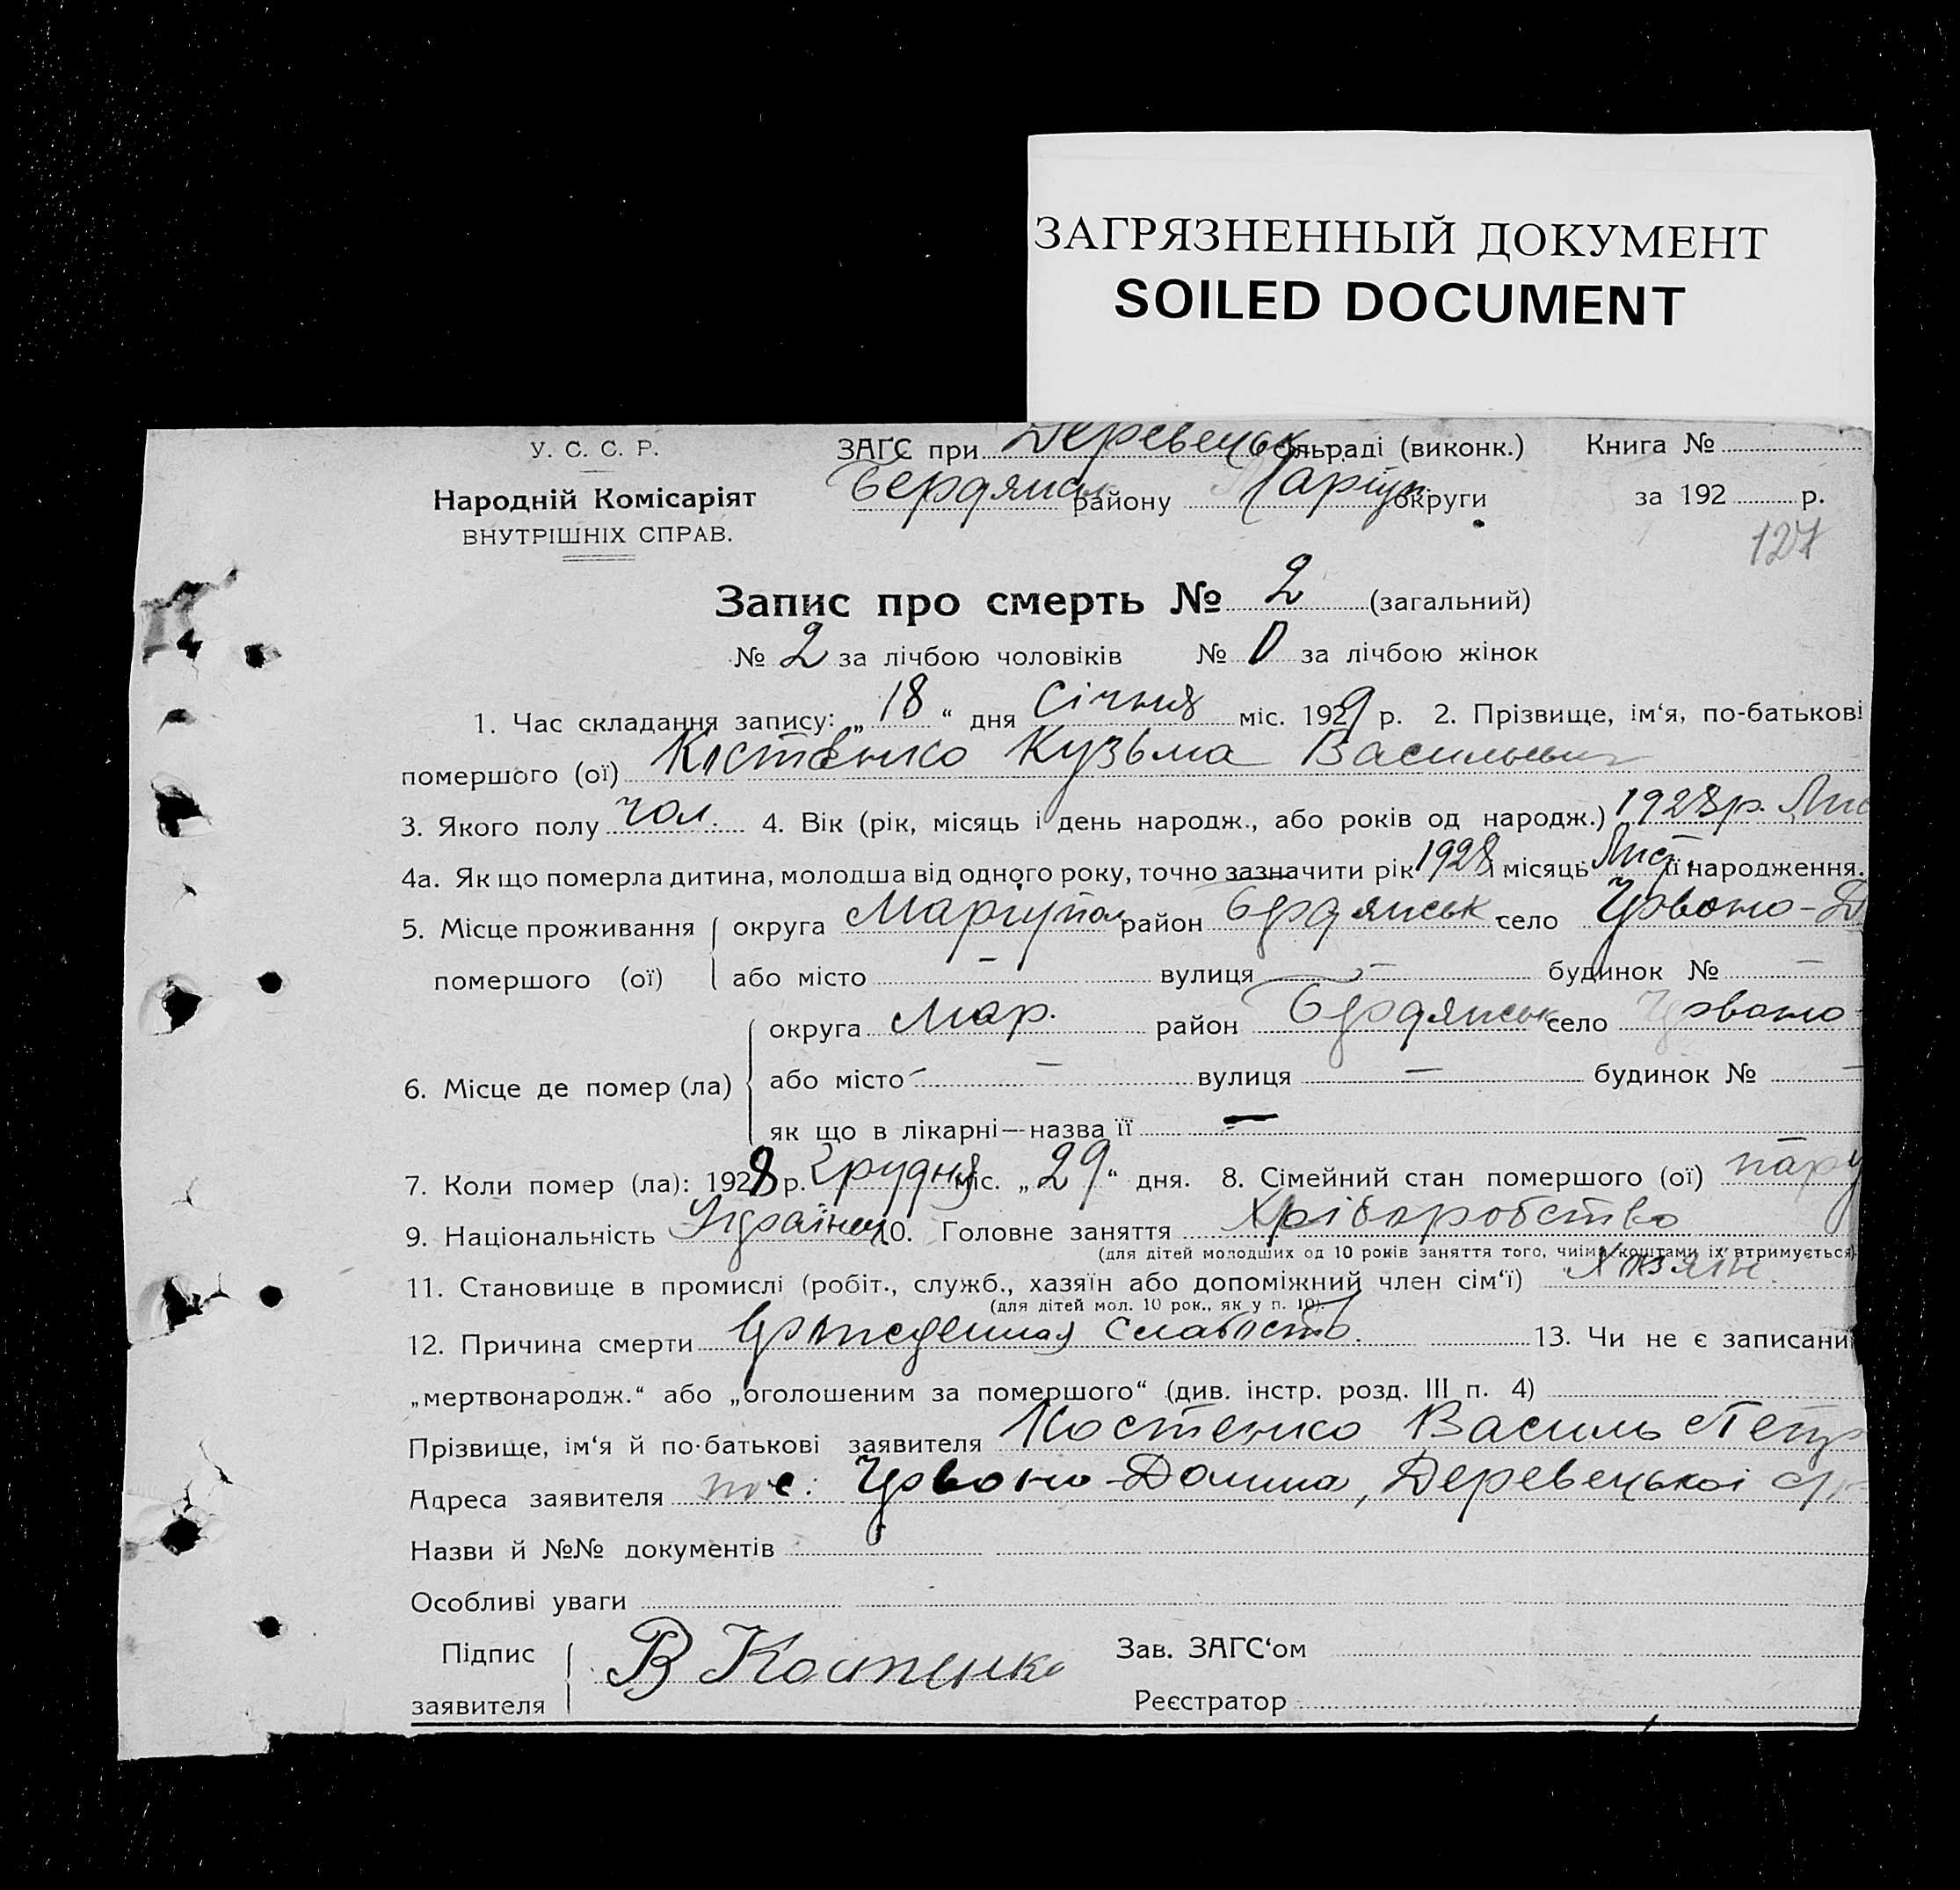 ЗАГРЯЗНЕННЫЙ ДОКУМЕНТ
SOILED DOCUMENT
У. С. С. Р.
Народній Комісаріят
ВНУТРІШНІХ СПРАВ.
ЗАГС при Деревецьк сільраді (виконк.) Книга №
Бердянськ району Маріуп. округи за 192 р.
127
Запис про смерть № 2 (загальний)
№ 2 за лічбою чоловіків № 0 за лічбою жінок
1. Час складання запису: „18“ дня Січня міс. 1929 р. 2. Прізвище, ім‘я, по-батькові
помершого (ої) Костенко Кузьма Васильевич
3. Якого полу чол. 4. Вік (рік, місяць і день народж., або років од народж.) 1928 р. Лис
4а. Як що померла дитина, молодша від одного року, точно зазначити рік 1928 і місяць Лист. її народження.
5. Місце проживання округа Маріупол район Бердянськ село Червоно-Д
помершого (ої) або місто — вулиця — будинок № —
округа Мар. район Бердянськ село Червоно
6. Місце де помер (ла) або місто — вулиця — будинок № —
як що в лікарні—назва її —
7. Коли помер (ла): 1928 р. Грудня міс. „29“ дня. 8. Сімейний стан помершого (ої) пару
9. Національність Українец 10. Головне заняття Хліборобство
(для дітей молодших од 10 років заняття того, чиїми коштами їх втримується)
11. Становище в промислі (робіт., служб., хазяїн або допоміжний член сім‘ї) Хазяїн.
(для дітей мол. 10 рок., як у п. 10).
12. Причина смерти Врожденная слабость. 13. Чи не є записани
„мертвонародж.“ або „оголошеним за помершого“ (див. інстр. розд. III п. 4)
Прізвище, ім‘я й по-батькові заявителя Костенко Василь Петр
Адреса заявителя пос: Червоно-Долина, Деревецької с/р
Назви й №№ документів
Особливі уваги
Підпис
заявителя В Костенко
Зав. ЗАГС‘ом
Реєстратор